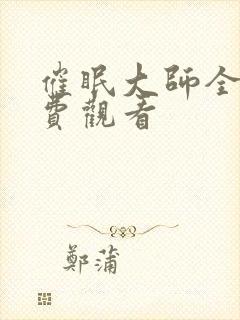 催眠大師全
費觀看
鄭蒲